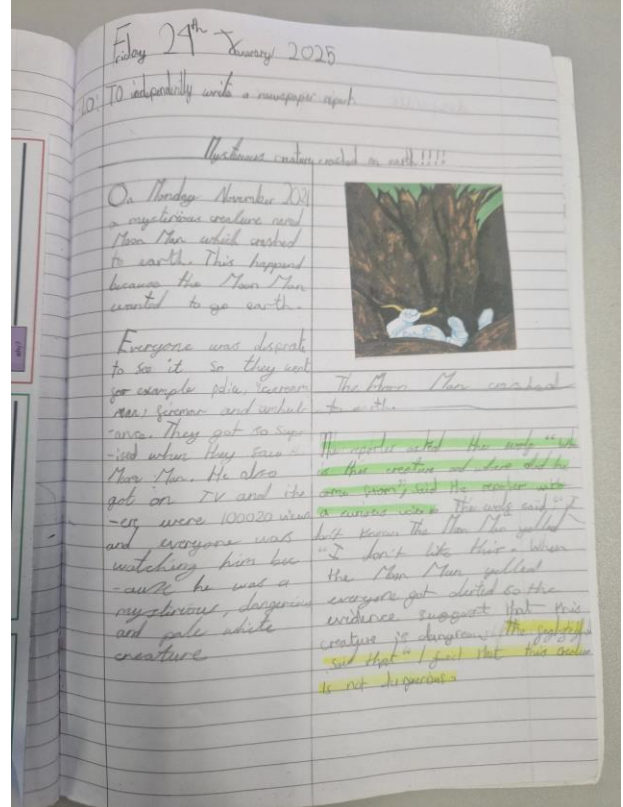 Friday 24th January 2025
LO: TO independently write a newspaper report
Mysterious creature crashed on earth!!!!
On Monday November 2024
a mysterious creature named
Moon Man which crashed
to earth. This happend
because the Moon Man
wanted to go earth.
Everyone was disprate
to see it so they went
for example police, icecream
man, fireman and
They got so sup
-ised when they saw
Moon Man. He also
got on TV and
were 100020 views
and everyone was
watching him bec
-ause he was a
mysterious, dangerous
and pale white
creature
The Moon Man crashed
to earth.
The reporter asked the
is this creature and where did he
come from", said the reporter with
a curious voice. The said "I
don't know. The Moon Man yelled
"I don't like this. When
the Moon Man yelled
everyone got so the
evidence suggest that this
creature is dangerous. The
that "I feel that this creature
is not dangerous.
why?